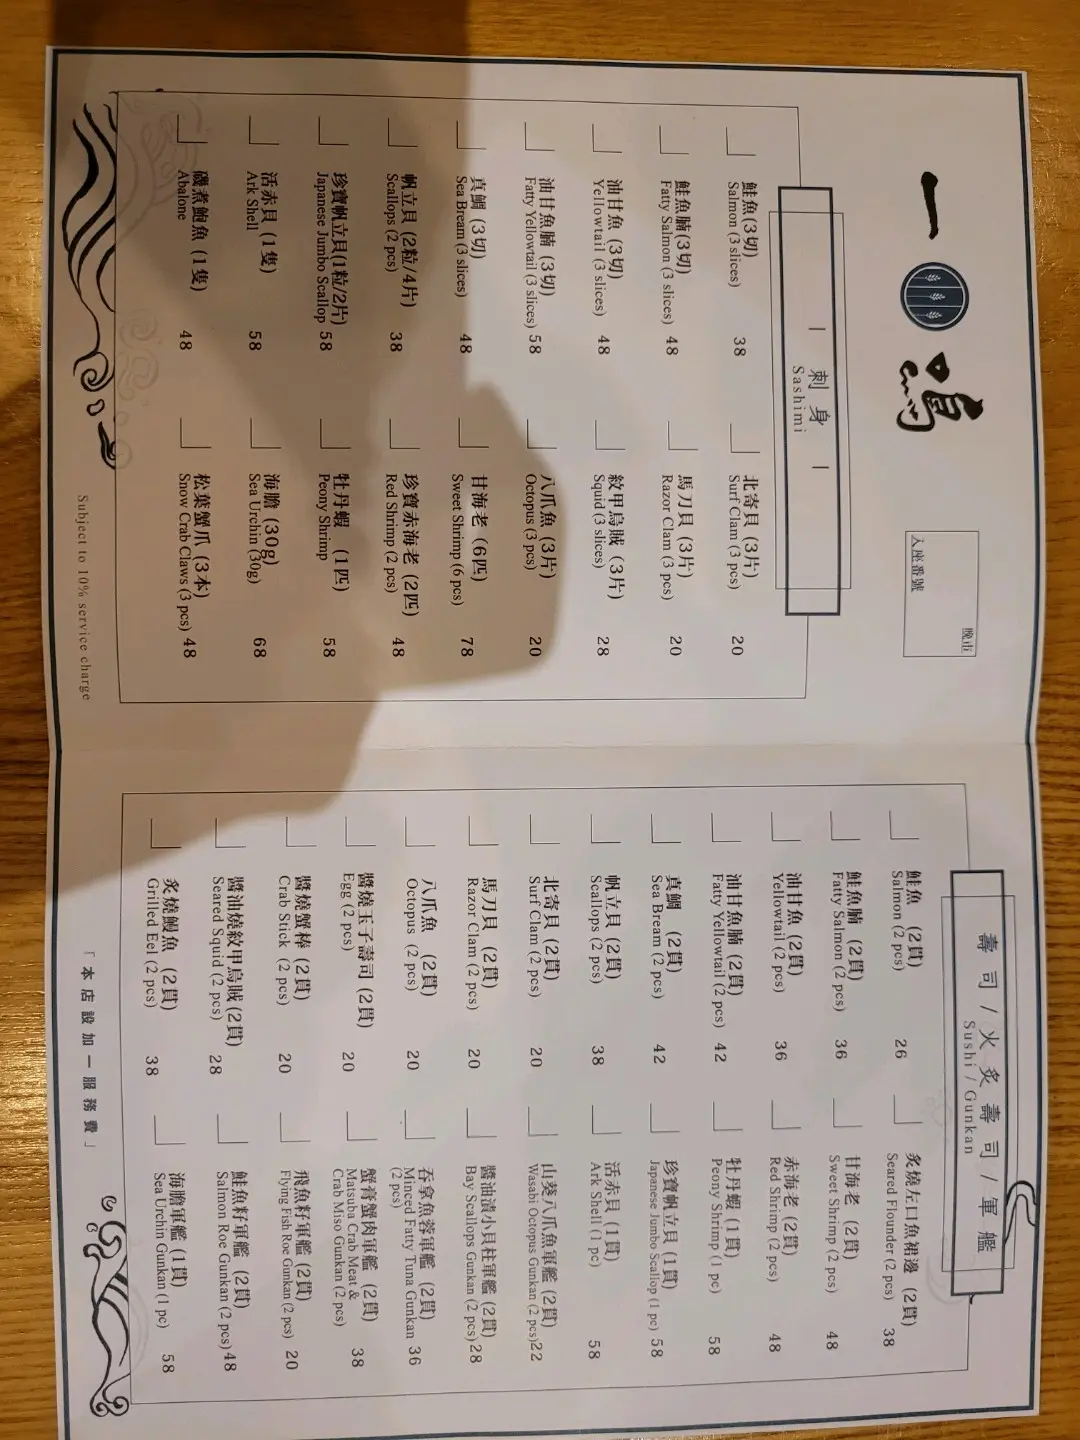 一鳴
晚市
入座番號
刺身
Sashimi
鮭魚(3切)
Salmon (3 slices) 38
鮭魚腩(3切)
Fatty Salmon (3 slices) 48
油甘魚 (3切)
Yellowtail (3 slices) 48
油甘魚腩 (3切)
Fatty Yellowtail (3 slices) 58
真鯛 (3切)
Sea Bream (3 slices) 48
帆立貝 (2粒/4片)
Scallops (2 pcs) 38
珍寶帆立貝(1粒/2片)
Japanese Jumbo Scallop 58
活赤貝 (1隻)
Ark Shell 58
磯煮鮑魚 (1隻)
Abalone 48
北寄貝 (3片)
Surf Clam (3 pcs) 20
馬刀貝 (3片)
Razor Clam (3 pcs) 20
紋甲烏賊 (3片)
Squid (3 slices) 28
八爪魚 (3片)
Octopus (3 pcs) 20
甘海老 (6匹)
Sweet Shrimp (6 pcs) 78
珍寶赤海老 (2匹)
Red Shrimp (2 pcs) 48
牡丹蝦 (1匹)
Peony Shrimp 58
海膽 (30g)
Sea Urchin (30g) 68
松葉蟹爪 (3本)
Snow Crab Claws (3 pcs) 48
Subject to 10% service charge
壽司/火炙壽司/軍艦
Sushi/Gunkan
鮭魚 (2貫)
Salmon (2 pcs) 26
鮭魚腩 (2貫)
Fatty Salmon (2 pcs) 36
油甘魚 (2貫)
Yellowtail (2 pcs) 36
油甘魚腩 (2貫)
Fatty Yellowtail (2 pcs) 42
真鯛 (2貫)
Sea Bream (2 pcs) 42
帆立貝 (2貫)
Scallops (2 pcs) 38
北寄貝 (2貫)
Surf Clam (2 pcs) 20
馬刀貝 (2貫)
Razor Clam (2 pcs) 20
八爪魚 (2貫)
Octopus (2 pcs) 20
醬燒玉子壽司 (2貫)
Egg (2 pcs) 20
醬燒蟹棒 (2貫)
Crab Stick (2 pcs) 20
醬油燒紋甲烏賊 (2貫)
Seared Squid (2 pcs) 28
炙燒鰻魚 (2貫)
Grilled Eel (2 pcs) 38
炙燒左口魚裙邊 (2貫)
Seared Flounder (2 pcs) 38
甘海老 (2貫)
Sweet Shrimp (2 pcs) 48
赤海老 (2貫)
Red Shrimp (2 pcs) 48
牡丹蝦 (1貫)
Peony Shrimp (1 pc) 58
珍寶帆立貝 (1貫)
Japanese Jumbo Scallop (1 pc) 58
活赤貝 (1貫)
Ark Shell (1 pc) 58
山葵八爪魚軍艦 (2貫)
Wasabi Octopus Gunkan (2 pcs) 22
醬油漬小貝柱軍艦 (2貫)
Bay Scallops Gunkan (2 pcs) 28
吞拿魚蓉軍艦 (2貫)
Minced Fatty Tuna Gunkan 36
(2 pcs)
蟹膏蟹肉軍艦 (2貫)
Matsuba Crab Meat &
Crab Miso Gunkan (2 pcs) 38
飛魚籽軍艦 (2貫)
Flying Fish Roe Gunkan (2 pcs) 20
鮭魚籽軍艦 (2貫)
Salmon Roe Gunkan (2 pcs) 48
海膽軍艦 (1貫)
Sea Urchin Gunkan (1 pc) 58
「本店設加一服務費」